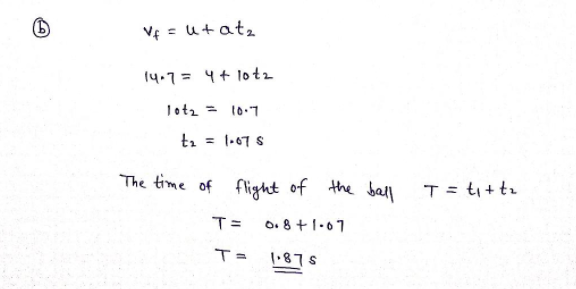 (b) v_f = u + at₂
14.7 = 4 + 10t₂
10t₂ = 10.7
t₂ = 1.07 s
The time of flight of the ball T = t₁ + t₂
T = 0.8 + 1.07
T = 1.87 s